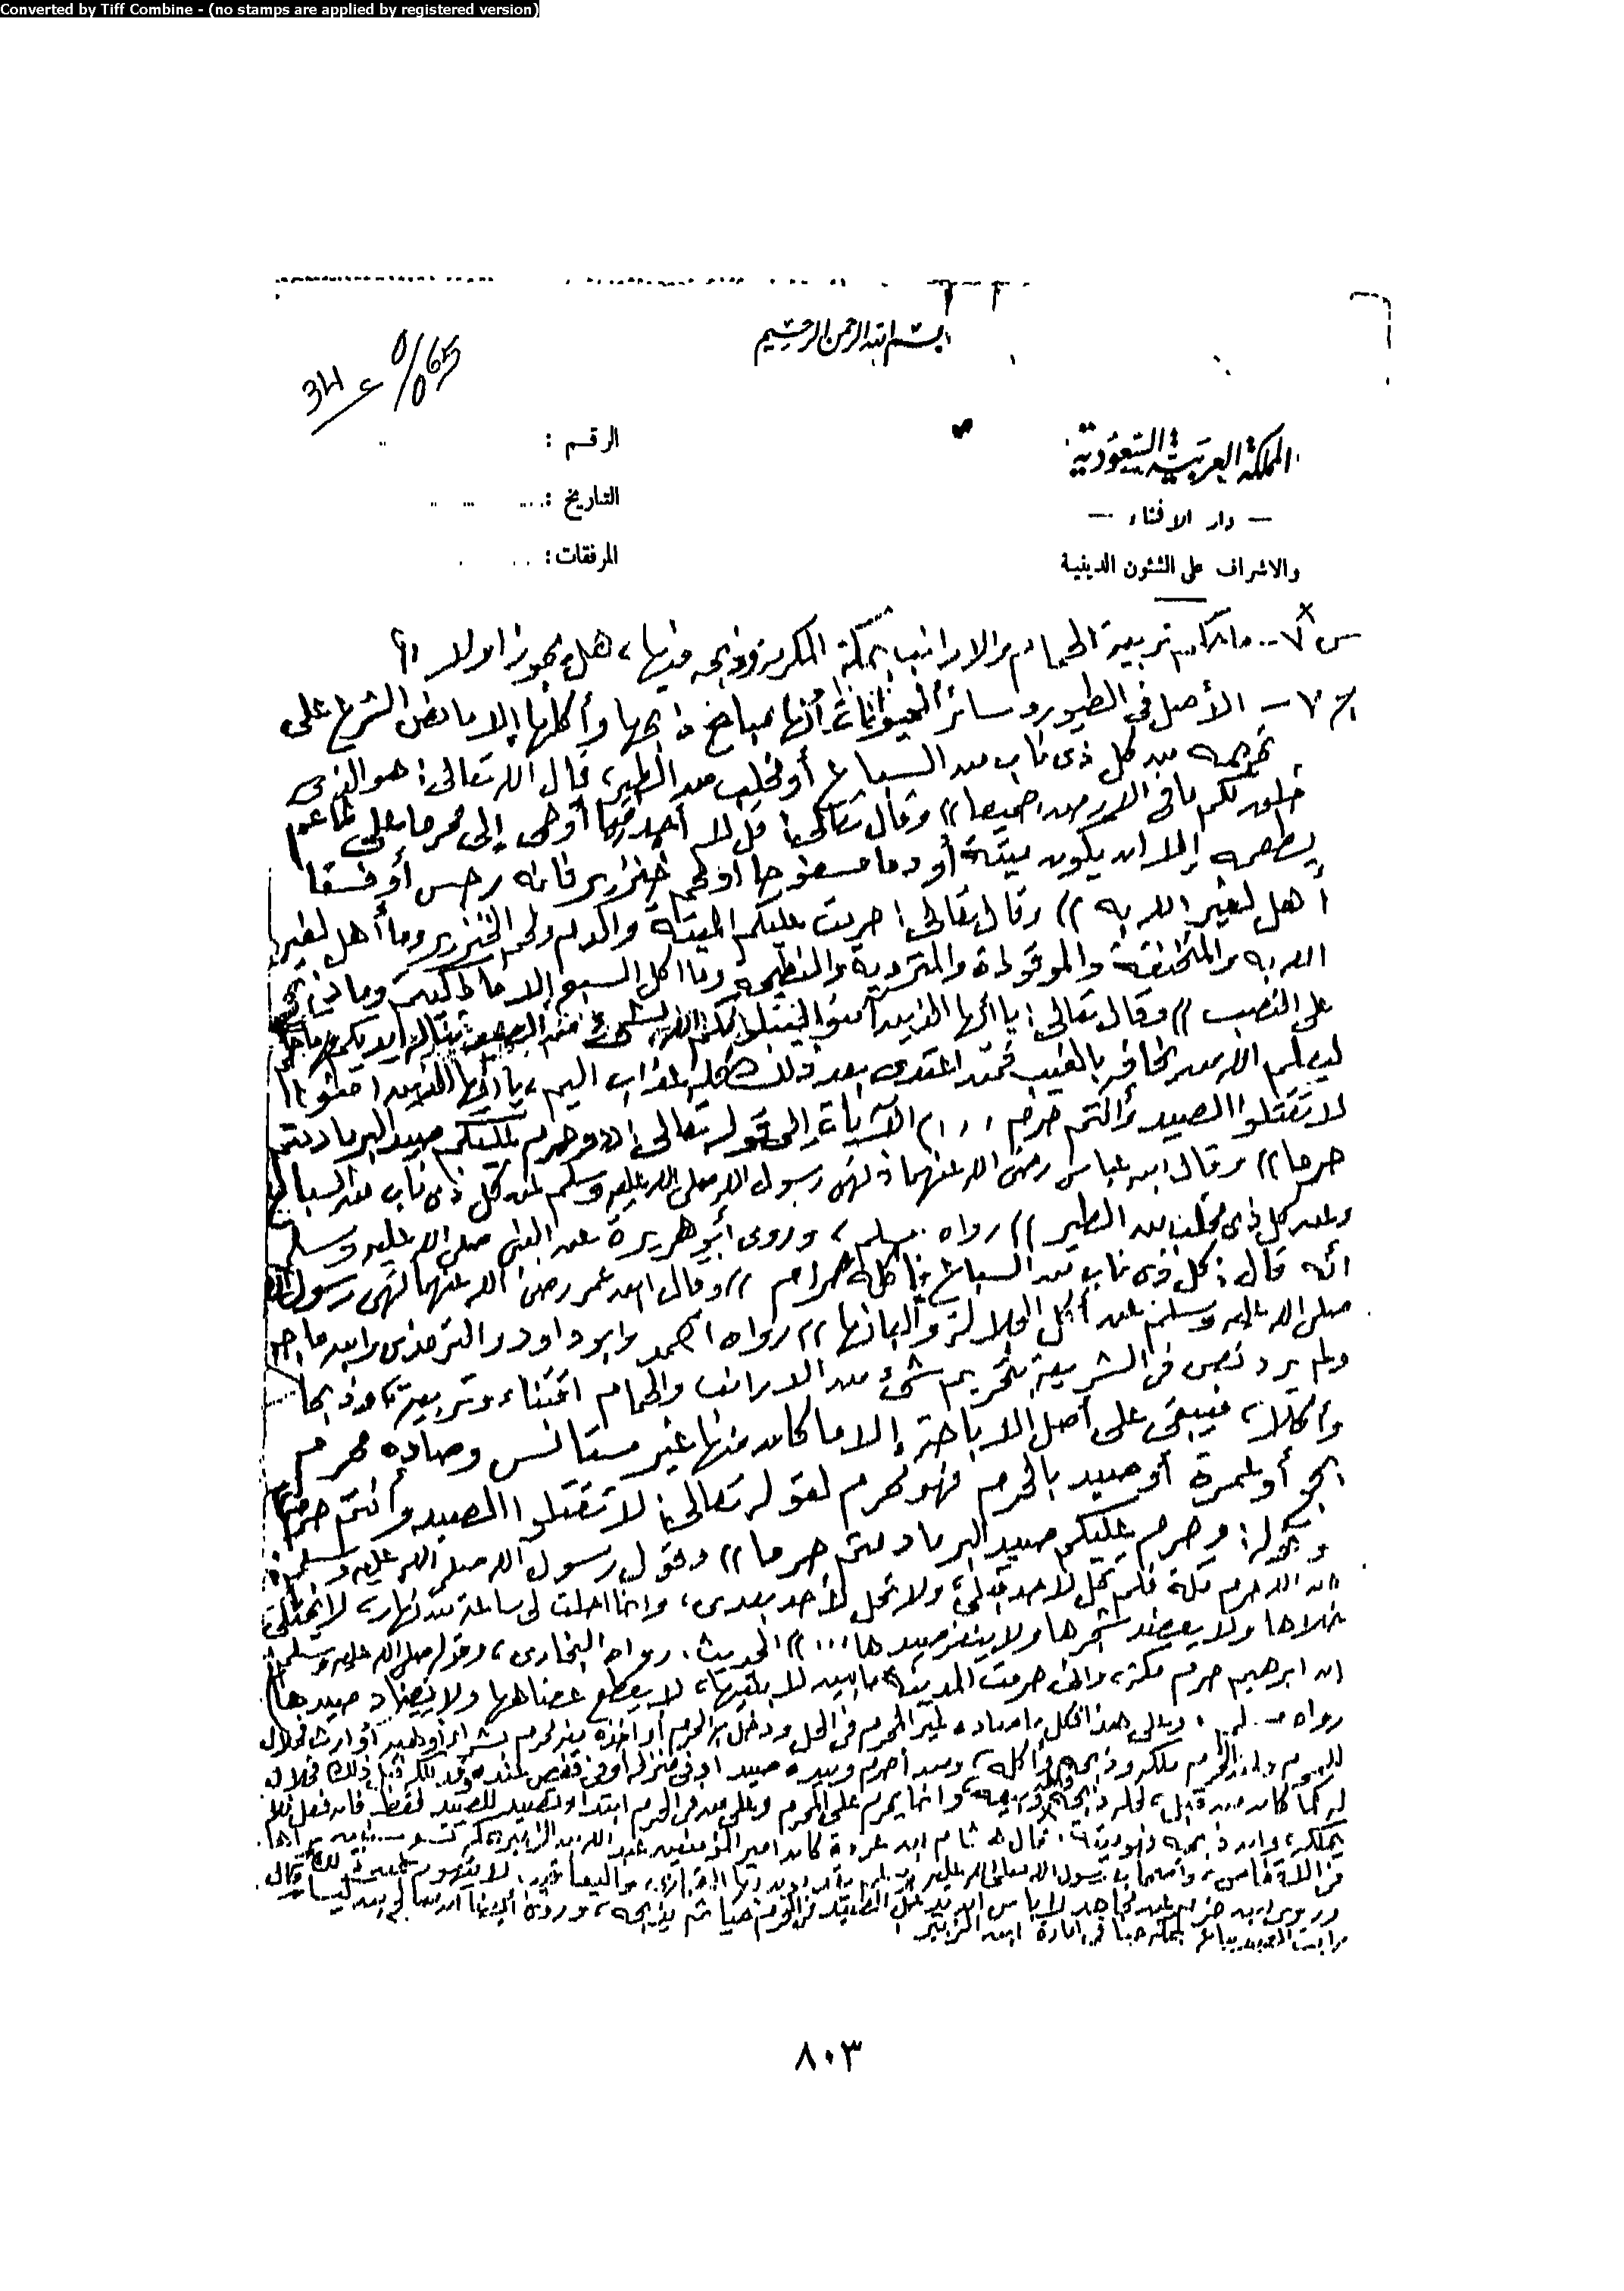 Converted by Tiff Combine - (no stamps are applied by registered version)
بسم الله الرحمن الرحيم
المملكة العربية السعودية
— دار الافتاء —
والاشراف على الشئون الدينية
الرقم :
التاريخ :
المرفقات :
س ٧ - ما حكم تربية الحمام والارانب بمكة المكرمة وذبحه فيها، هل يجوز او لا؟
ج ٧ - الأصل في الطيور وسائر الحيوانات أنها مباح ذبحها وأكلها إلا ما نص الشرع على
تحريمه من كل ذى ناب من السباع أو مخلب من الطير، قال الله تعالى: هو الذى
خلق لكم ما فى الارض جميعا)) وقال تعالى: قل لا أجد فيما أوحى إلى محرما على طاعم
يطعمه إلا ان يكون ميتة أو دما مسفوحا او لحم خنزير فانه رجس أو فسقا
أهل لغير الله به)) وقال تعالى: حرمت عليكم الميتة والدم ولحم الخنزير وما أهل لغير
الله به والمنخنقة والموقوذة والمتردية والنطيحة وما اكل السبع إلا ما ذكيتم وما ذبح
على النصب)) وقال تعالى: يا أيها الذين آمنوا ليبلونكم الله بشئ من الصيد تناله ايديكم ورماحكم
ليعلم الله من يخافه بالغيب فمن اعتدى بعد ذلك فله عذاب اليم، يا أيها الذين آمنوا
لا تقتلوا الصيد وأنتم حرم ...)) الآيات إلى قوله تعالى: وحرم عليكم صيد البر ما دمتم
حرما)) وقال ابن عباس رضى الله عنهما: نهى رسول الله صلى الله عليه وسلم عن كل ذى ناب من السباع
وعن كل ذى مخلب من الطير)) رواه مسلم، وروى أبو هريرة عن النبى صلى الله عليه وسلم
انه قال: كل ذى ناب من السباع فأكله حرام)) وقال ابن عمر رضى الله عنهما نهى رسول الله
صلى الله عليه وسلم عن أكل الجلالة وألبانها)) رواه احمد وابو داود والترمذى وابن ماجه
ولم يرد نص فى الشريعة بتحريم شئ من الارانب والحمام اقتناء وتربية وذبحا
وأكلا، فيبقى على أصل الاباحة إلا ما كان منها غير مستأنس وصاده محرم
بحج أو عمرة أو صيد بالحرم فهو محرم لقوله تعالى: لا تقتلوا الصيد وأنتم حرم
وقوله: وحرم عليكم صيد البر ما دمتم حرما)) وقول رسول الله صلى الله عليه وسلم:
ان الله حرم مكة فلم تحل لاحد قبلى ولا تحل لأحد بعدى، وانما احلت لى ساعة من نهار، لا يختلى
خلاها ولا يعضد شجرها ولا ينفر صيدها...)) الحديث. رواه البخارى، وقوله صلى الله عليه وسلم
ان ابرهيم حرم مكة، وانى حرمت المدينة ما بين لابتيها، لا يقطع عضاهها ولا يصاد صيدها
رواه مسلم، وعلى هذا فكل ما صاده غير المحرم فى الحل ودخل به الحرم أو اخذه غير محرم بشراء أو هبة أو ارث فحلال
ملكه وذبحه وأكله، ومن أحرم وبيده صيد او فى منزله أو فى قفص عنده وقد ملكه قبل ذلك فحلال
له كما كان من قبل، وانما يحرم على المحرم وعلى من فى الحرم ابتداء التصيد للصيد فقط فان فعل فلم
يملكه، وان ذبحه فهو ميتة، قال هشام ابن عروة كان امير المؤمنين عبد الله بن الزبير بمكة
وروى ابن حزم عن مجاهد لا بأس ان يدخل الصيد فى الحرم حيا ثم يذبحه،
فى امارة ابن الزبير
٨٠٣